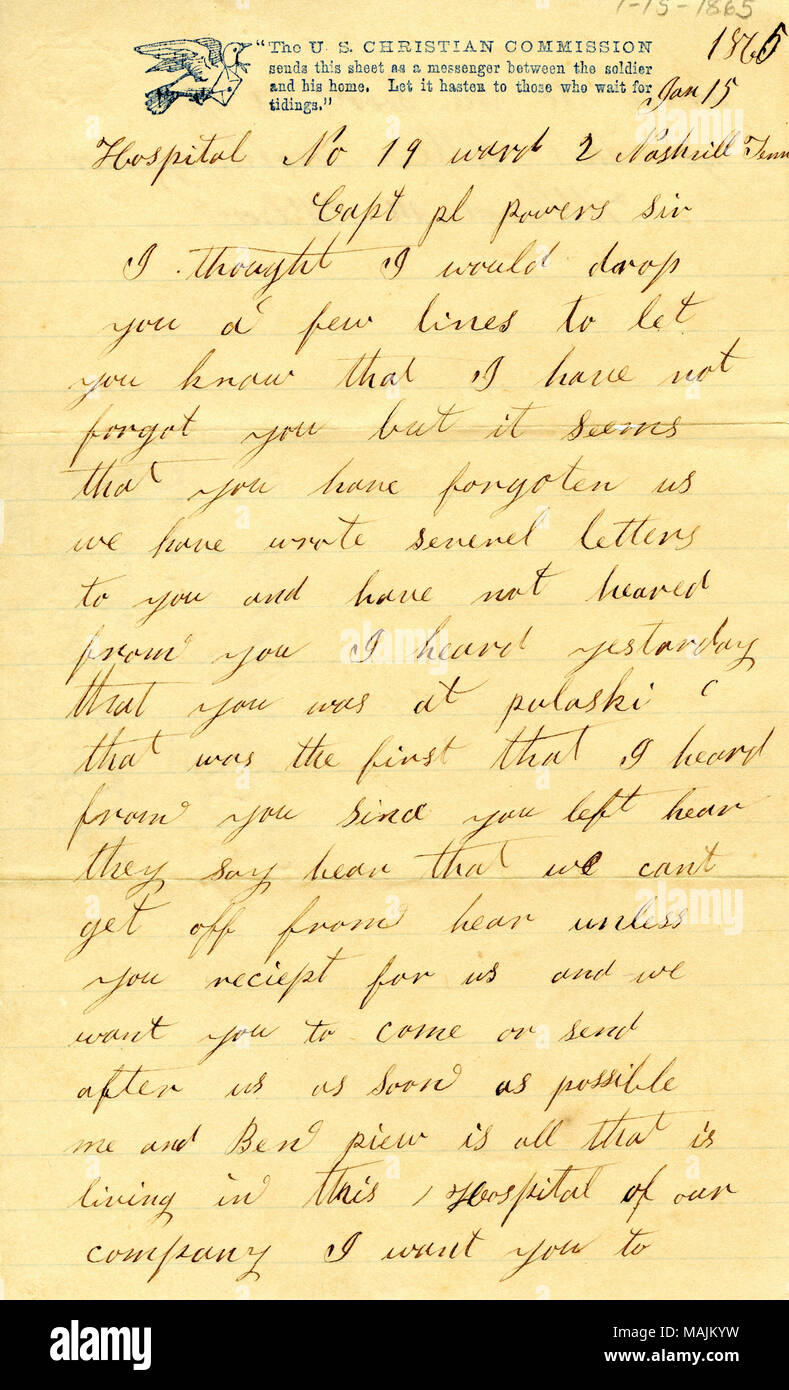 1-15-1865
"The U. S. CHRISTIAN COMMISSION
sends this sheet as a messenger between the soldier
and his home. Let it hasten to those who wait for
tidings."
1865
Jan 15
Hospital No 19 ward 2 Nashvill Tenn
Capt pl powers sir
I thought I would drop
you a few lines to let
you know that I have not
forgot you but it seems
that you have forgoten us
we have wrote severel letters
to you and have not heared
from you I heard yestarday
that you was at pulaski
that was the first that I heard
from you sinc you left hear
they say hear that we cant
get off from hear unless
you reciept for us and we
want you to come or send
after us as soon as possible
me and Ben piew is all that is
living in this Hospital of our
company I want you to
alamy
Image ID: MAJKYW
www.alamy.com